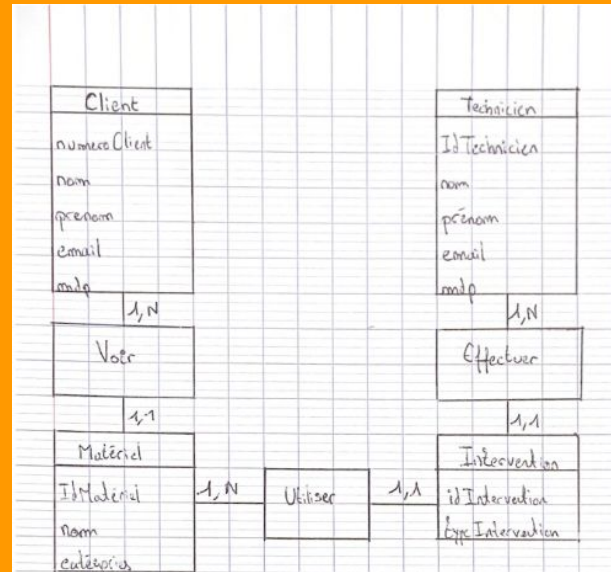 Client
numeroClient
nom
prenom
email
mdp
1,N
Voir
1,1
Matériel
IdMatériel
nom
Technicien
IdTechnicien
nom
prénom
email
mdp
1,N
Effectuer
1,1
Intervention
idIntervention
typeIntervention
1,N
Utiliser
1,1